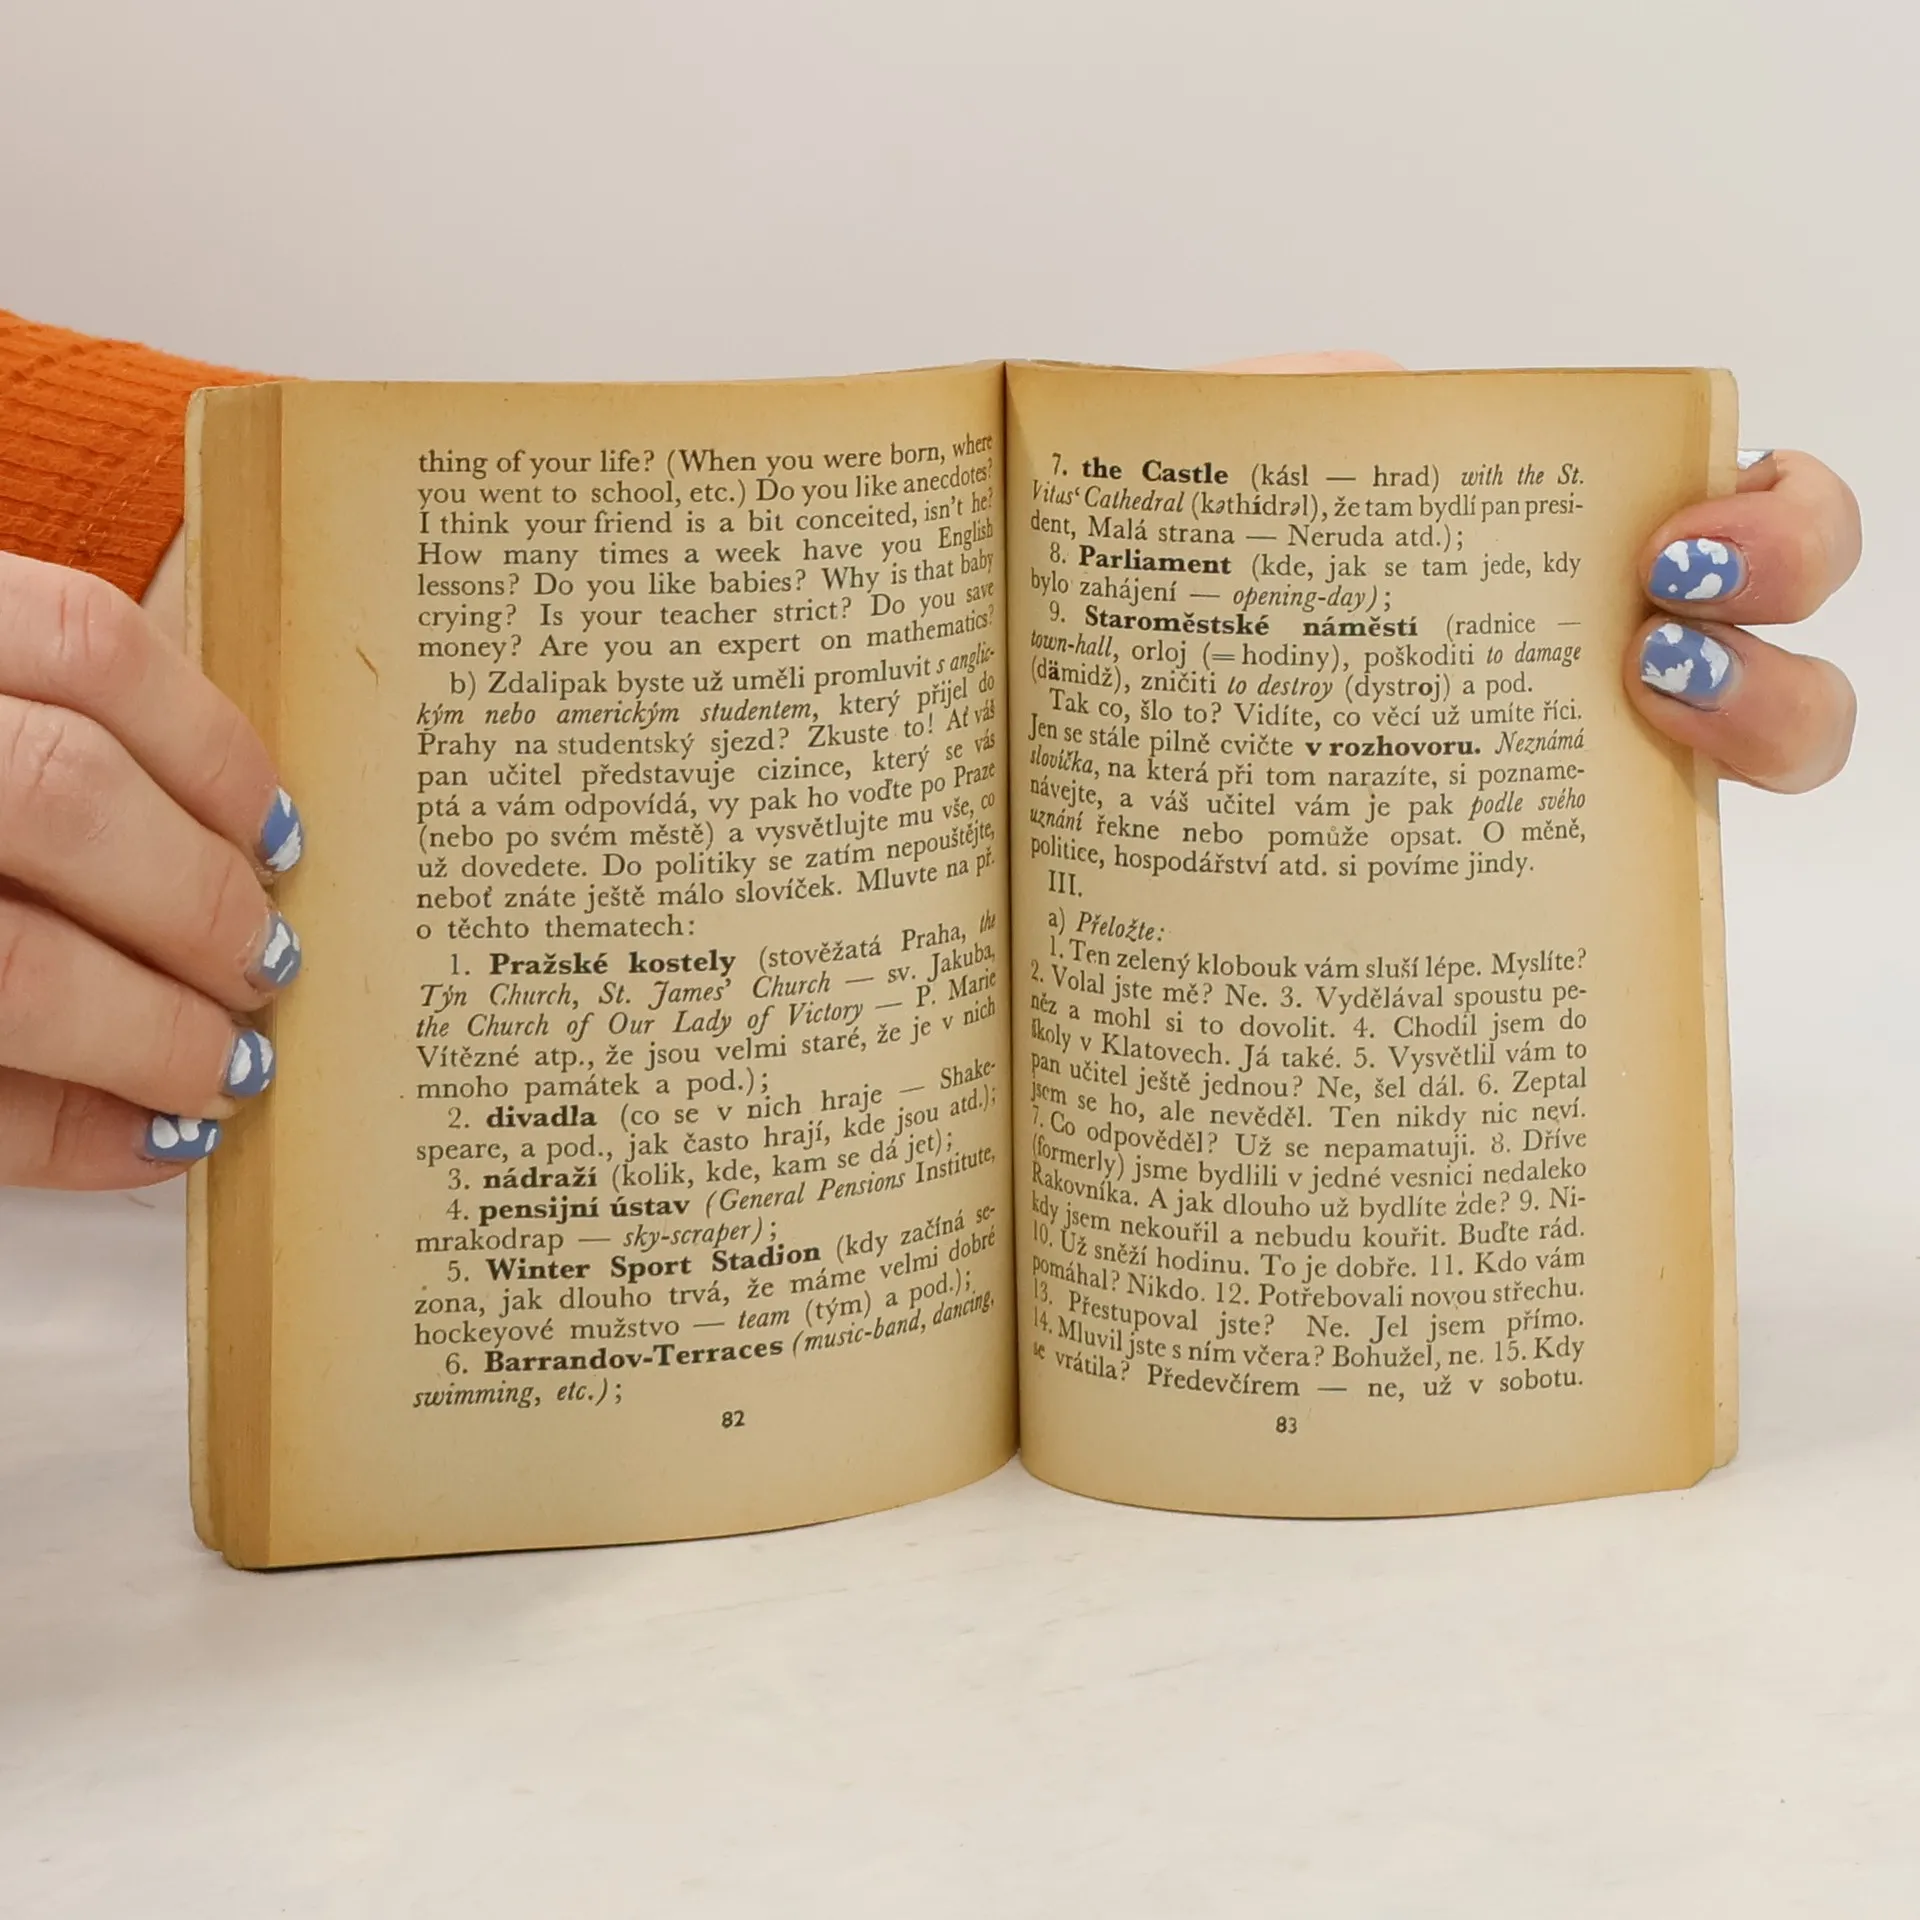 thing of your life? (When you were born, where
you went to school, etc.) Do you like anecdotes?
I think your friend is a bit conceited, isn't he?
How many times a week have you English
lessons? Do you like babies? Why is that baby
crying? Is your teacher strict? Do you save
money? Are you an expert on mathematics?
b) Zdalipak byste už uměli promluvit s anglic-
kým nebo americkým studentem, který přijel do
Prahy na studentský sjezd? Zkuste to! Ať váš
pan učitel představuje cizince, který se vás
ptá a vám odpovídá, vy pak ho voďte po Praze
(nebo po svém městě) a vysvětlujte mu vše, co
už dovedete. Do politiky se zatím nepouštějte,
neboť znáte ještě málo slovíček. Mluvte na př.
o těchto thematech:
1. Pražské kostely (stověžatá Praha, the
Týn Church, St. James' Church — sv. Jakuba,
the Church of Our Lady of Victory — P. Marie
Vítězné atp., že jsou velmi staré, že je v nich
mnoho památek a pod.);
2. divadla (co se v nich hraje — Shake-
speare, a pod., jak často hrají, kde jsou atd.);
3. nádraží (kolik, kde, kam se dá jet);
4. pensijní ústav (General Pensions Institute,
mrakodrap — sky-scraper);
5. Winter Sport Stadion (kdy začíná se-
zona, jak dlouho trvá, že máme velmi dobré
hockeyové mužstvo — team (tým) a pod.);
6. Barrandov-Terraces (music-band, dancing,
swimming, etc.);
82
7. the Castle (kásl — hrad) with the St.
Vitus' Cathedral (kəthídrəl), že tam bydlí pan presi-
dent, Malá strana — Neruda atd.);
8. Parliament (kde, jak se tam jede, kdy
bylo zahájení — opening-day);
9. Staroměstské náměstí (radnice —
town-hall, orloj (=hodiny), poškoditi to damage
(dämidž), zničiti to destroy (dystroj) a pod.
Tak co, šlo to? Vidíte, co věcí už umíte říci.
Jen se stále pilně cvičte v rozhovoru. Neznámá
slovíčka, na která při tom narazíte, si pozname-
návejte, a váš učitel vám je pak podle svého
uznání řekne nebo pomůže opsat. O měně,
politice, hospodářství atd. si povíme jindy.
III.
a) Přeložte:
1. Ten zelený klobouk vám sluší lépe. Myslíte?
2. Volal jste mě? Ne. 3. Vydělával spoustu pe-
něz a mohl si to dovolit. 4. Chodil jsem do
školy v Klatovech. Já také. 5. Vysvětlil vám to
pan učitel ještě jednou? Ne, šel dál. 6. Zeptal
jsem se ho, ale nevěděl. Ten nikdy nic neví.
7. Co odpověděl? Už se nepamatuji. 8. Dříve
(formerly) jsme bydlili v jedné vesnici nedaleko
Rakovníka. A jak dlouho už bydlíte zde? 9. Ni-
kdy jsem nekouřil a nebudu kouřit. Buďte rád.
10. Už sněží hodinu. To je dobře. 11. Kdo vám
pomáhal? Nikdo. 12. Potřebovali novou střechu.
13. Přestupoval jste? Ne. Jel jsem přímo.
14. Mluvil jste s ním včera? Bohužel, ne. 15. Kdy
se vrátila? Předevčírem — ne, už v sobotu.
83